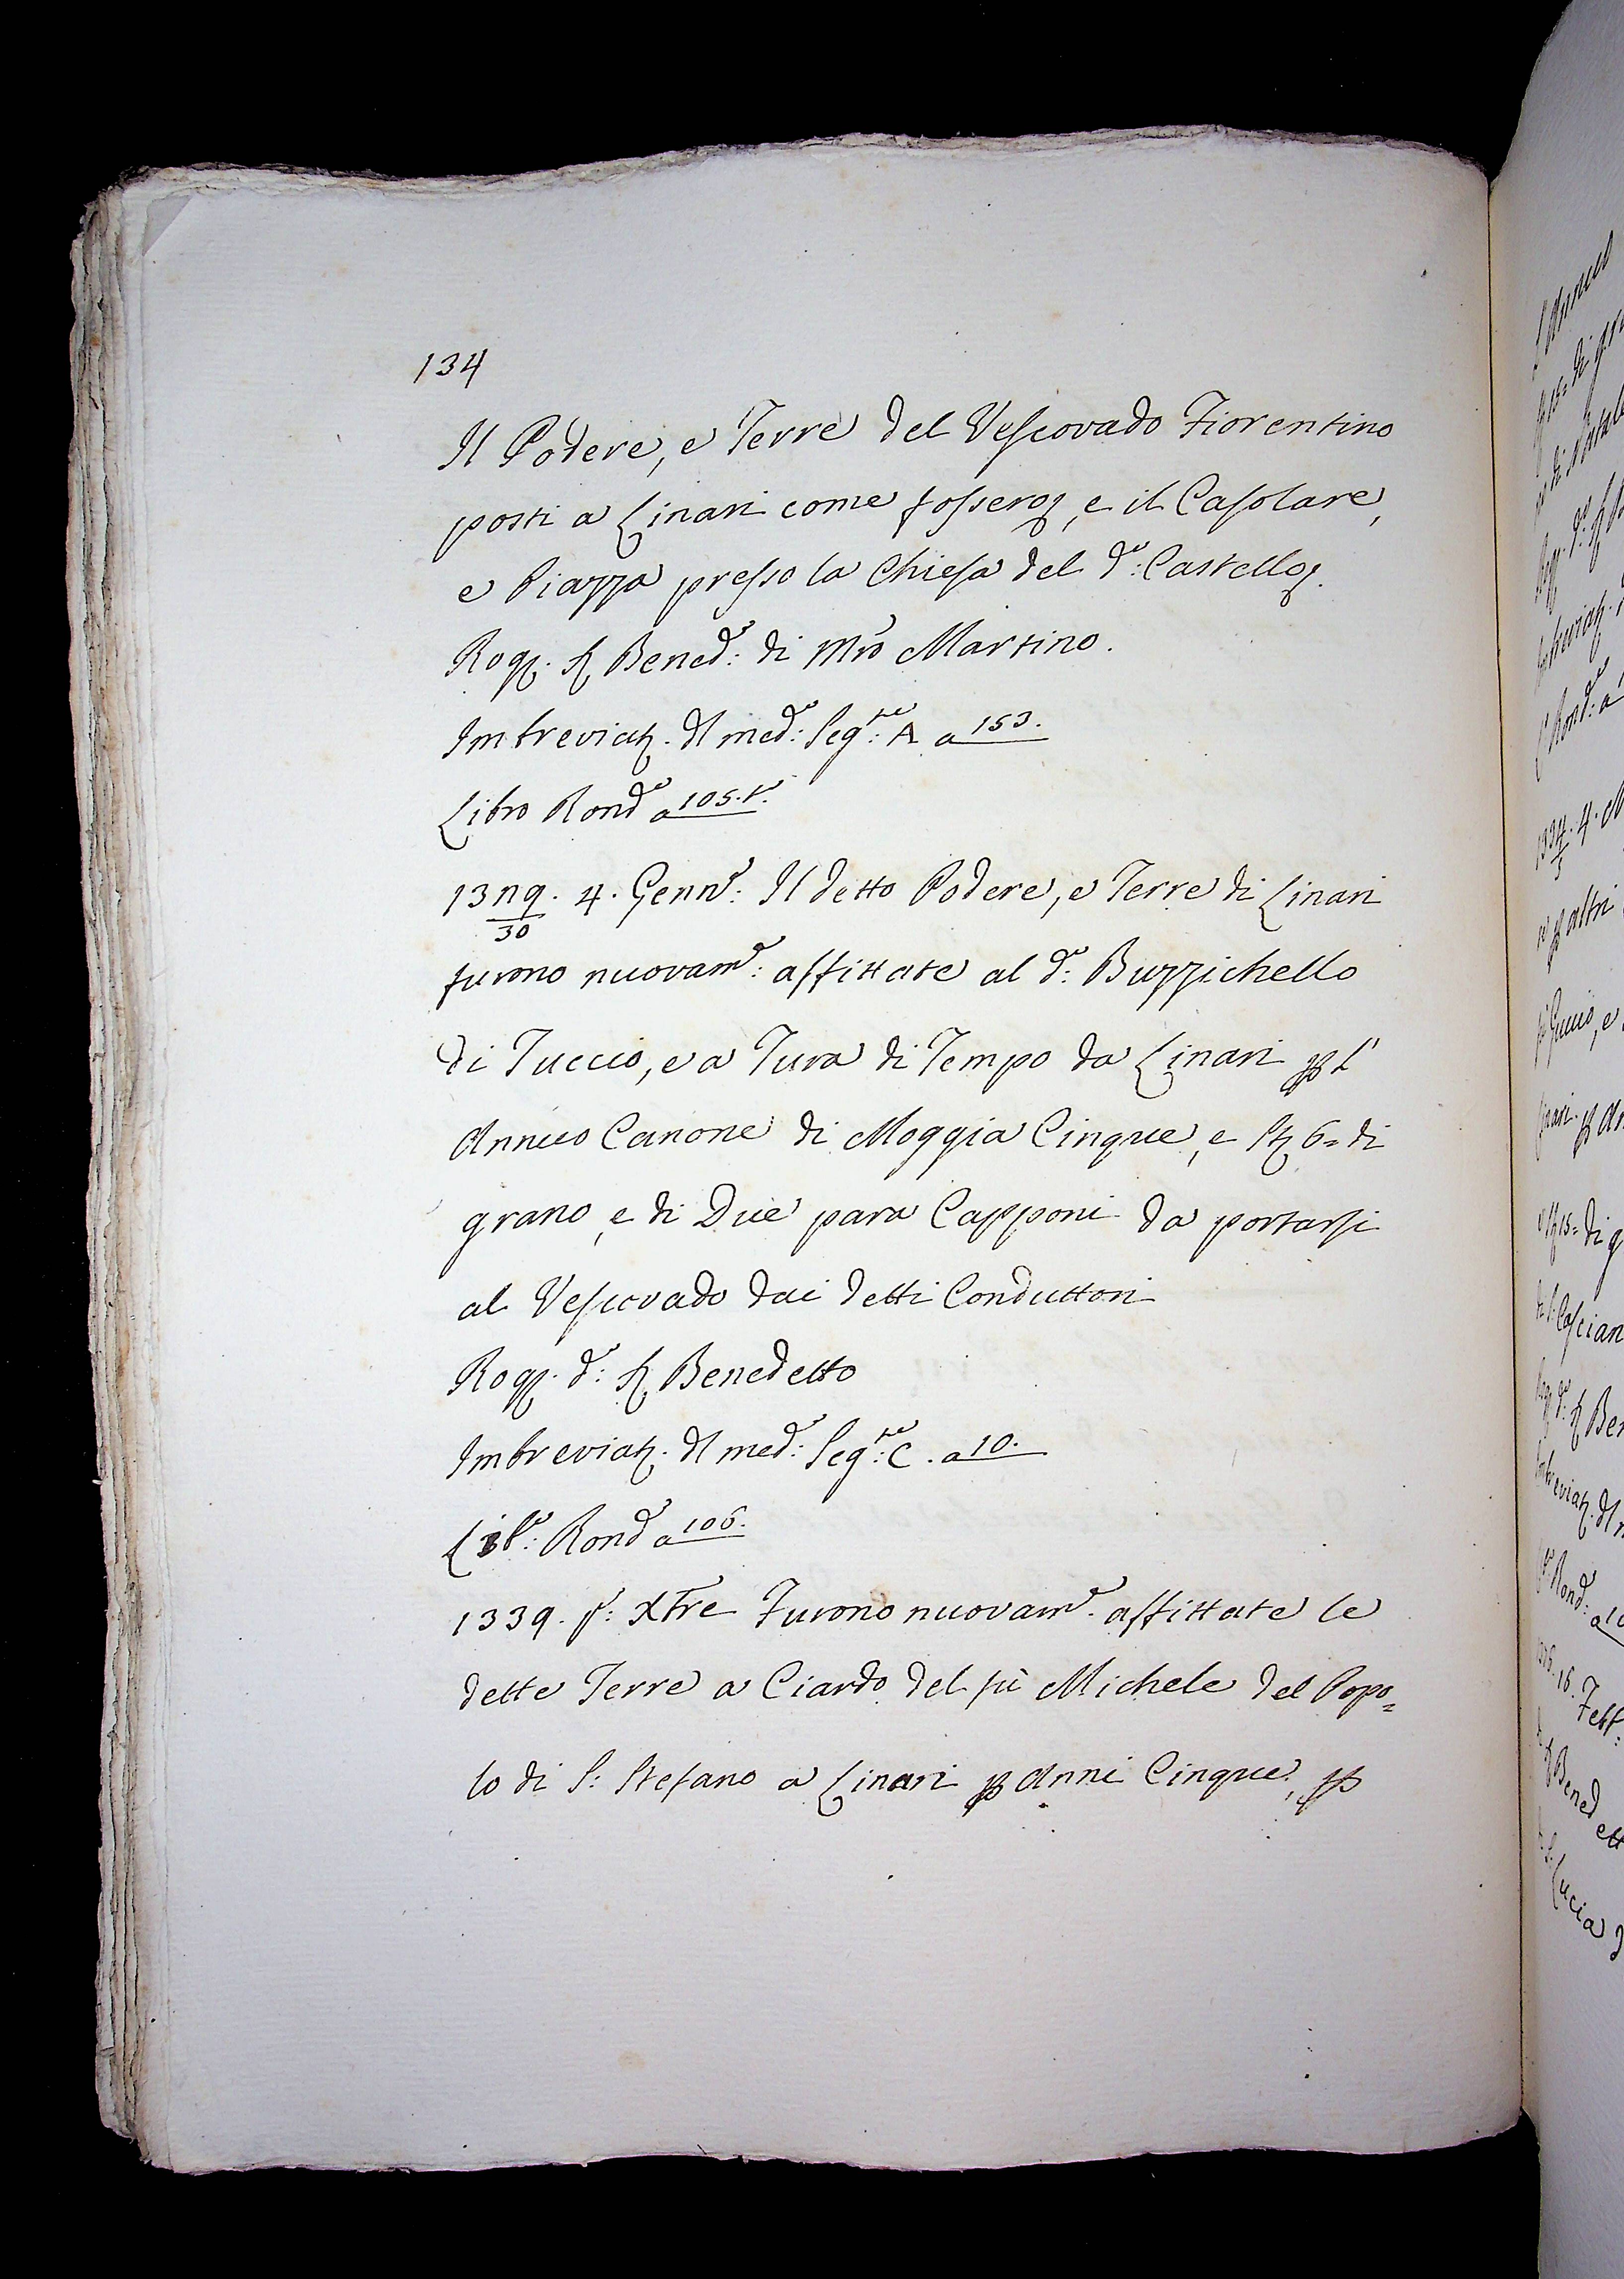 134
Il Podere, e Terre del Vescovado Fiorentino
posti a Linari come fossero, e il Casolare,
e Piazza presso la Chiesa del d.º: Castello.
Rog. Sr Bened.º: di Mro Martino.
Imbreviat. dl med.º: Seg.to: A a 153.
Libro Rond.º a 105.t.º
1329/30. 4. Genn.º: Il detto Podere, e Terre di Linari
furono nuovam.e: affittate al d.º: Buzzichello
di Tuccio, e a Tura di Tempo da Linari p l'
Annuo Canone di Moggia Cinque, e St 6= di
grano, e di Due para Capponi da portarsi
al Vescovado dai detti Conduttori
Rog. d.º: Sr Benedetto
Imbreviat. dl med.º: Seg.to: C. a 10.
Lib.º: Rond.º a 106.
1339. p.º: Xbre Furono nuovam.e: affittate le
dette Terre a Ciardo del fù Michele del Popo=
lo di S: Stefano a Linari p Anni Cinque, p